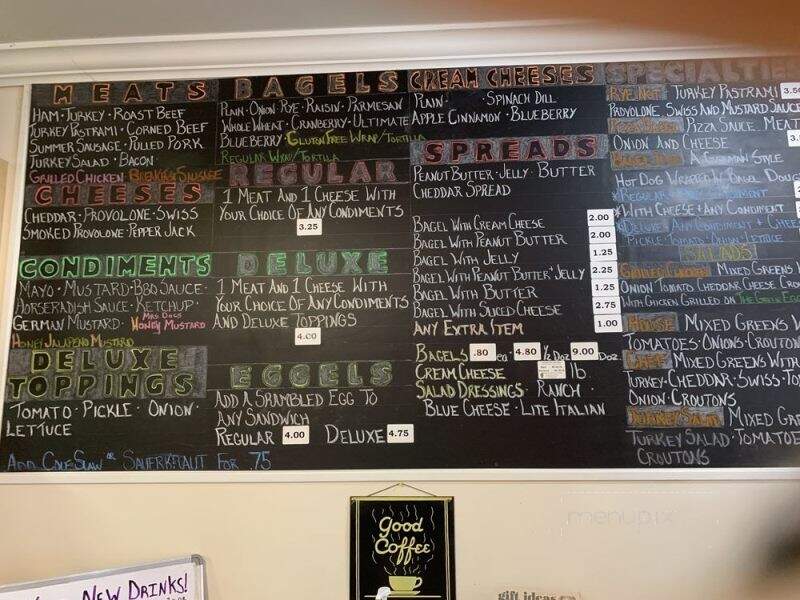 MEATS
HAM · TURKEY · ROAST BEEF
TURKEY PASTRAMI · CORNED BEEF
SUMMER SAUSAGE · PULLED PORK
TURKEY SALAD · BACON
GRILLED CHICKEN
CHEESES
CHEDDAR · PROVOLONE · SWISS
SMOKED PROVOLONE · PEPPER JACK
CONDIMENTS
MAYO · MUSTARD · BBQ SAUCE ·
HORSERADISH SAUCE · KETCHUP ·
GERMAN MUSTARD · MRS. DOGS HONEY MUSTARD
HONEY JALAPENO MUSTARD
DELUXE
TOPPINGS
TOMATO · PICKLE · ONION ·
LETTUCE
ADD COLE SLAW OR SAUERKRAUT FOR .75
BAGELS
PLAIN · ONION · RYE · RAISIN · PARMESAN
WHOLE WHEAT · CRANBERRY · ULTIMATE
BLUEBERRY GLUTEN FREE WRAP/TORTILLA
REGULAR WRAP/TORTILLA
REGULAR
1 MEAT AND 1 CHEESE WITH
YOUR CHOICE OF ANY CONDIMENTS
3.25
DELUXE
1 MEAT AND 1 CHEESE WITH
YOUR CHOICE OF ANY CONDIMENTS
AND DELUXE TOPPINGS
4.00
EGGELS
ADD A SRAMBLED EGG TO
ANY SANDWICH
REGULAR 4.00 DELUXE 4.75
CREAM CHEESES
PLAIN · · SPINACH DILL
APPLE CINNAMON · BLUEBERRY
SPREADS
PEANUT BUTTER · JELLY · BUTTER
CHEDDAR SPREAD
BAGEL WITH CREAM CHEESE 2.00
BAGEL WITH PEANUT BUTTER 2.00
BAGEL WITH JELLY 1.25
BAGEL WITH PEANUT BUTTER JELLY 2.25
BAGEL WITH BUTTER 1.25
BAGEL WITH SLICED CHEESE 2.75
ANY EXTRA ITEM 1.00
BAGELS .80 ea · 4.80 1/2 DOZ 9.00 DOZ
CREAM CHEESE lb
SALAD DRESSINGS · RANCH ·
BLUE CHEESE · LITE ITALIAN
SPECIALTIES
RYE NOT TURKEY PASTRAMI 3.50
PROVOLONE SWISS AND MUSTARD SAUCE
PIZZA SAUCE MEAT
ONION AND CHEESE 3.
A GERMAN STYLE
HOT DOG WRAPPED IN BAGEL DOUGH
REGULAR
WITH CHEESE + ANY CONDIMENT
DELUXE ANY CONDIMENT + CHEESE
PICKLE TOMATO ONION LETTUCE
SALADS
GRILLED CHICKEN MIXED GREENS
ONION TOMATO CHEDDAR CHEESE
WITH CHICKEN GRILLED ON THE GREEN EGG
HOUSE MIXED GREENS W
TOMATOES · ONIONS · CROUTON
CHEF MIXED GREENS WITH
TURKEY · CHEDDAR · SWISS · TO
ONION · CROUTONS
TURKEY SALAD MIXED GR
TURKEY SALAD · TOMATOE
CROUTONS
Good
Coffee
menupix
NEW DRINKS!
gift ideas